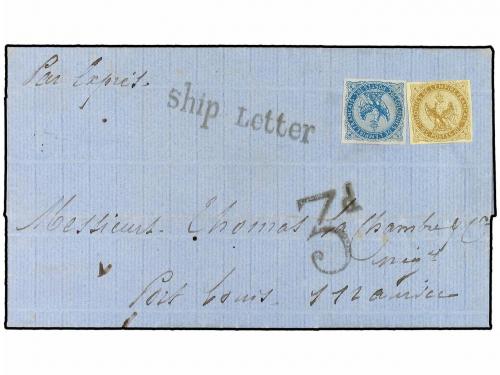 Par Exprés.
Ship Letter
3d
Messieurs. Thomas Lachambre & Cie
Négts
Port Louis. Maurice